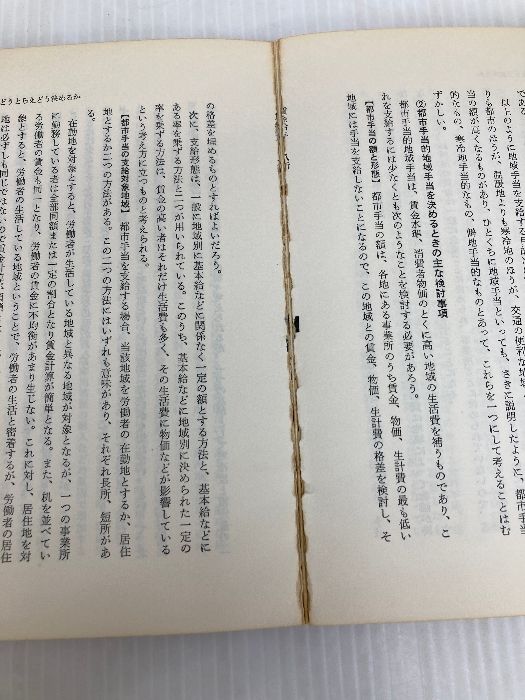 である。
以上のように地域手当を支給する
りも都市のほうが、温暖地よりも寒冷地のほうが、交通の便利な地域
当の額が高くなるものがあり、ひとくちに地域手当といっても、さきに説明したように、都市手当
的なもの、寒冷地手当的なもの、僻地手当的なものとあって、これらを一つにして考えることはむ
ずかしい。
②都市手当的地域手当を決めるときの主な検討事項
都市手当的地域手当は、賃金水準、消費者物価のとくに高い地域の生活費を補うものであり、こ
れを支給するには少なくとも次のようなことを検討する必要があろう。
【都市手当の額と形態】 都市手当の額は、各地にある事業所のうち賃金、物価、生計費の最も低い
地域には手当を支給しないことになるので、この地域との賃金、物価、生計費の格差を検討し、そ
どうとらえどう決めるか
の格差を埋めるものとすればよいだろう。
次に、支給形態は、一般に地域別に基本給などに関係なく一定の額とする方法と、基本給などに
ある率を乗ずる方法と二つが用いられている。このうち、基本給などに地域別に決められた一定の
率を乗ずる方法は、賃金の高い者はそれだけ生活費も多く、その生活費に物価などが影響している
という考え方に立つものと考えられる。
【都市手当の支給対象地域】 都市手当を支給する場合、当該地域を労働者の在勤地とするか、居住
地とするか二つの方法がある。この二つの方法にはいずれも意味があり、それぞれ長所、短所があ
る。
在勤地を対象とすると、労働者が生活している地域と異なる地域が対象となるが、一つの事業所
に勤務している者は全部同額または一定の割合となり賃金計算が簡単となる。また、机を並べてい
る労働者の賃金も同一となり、労働者の賃金に不均衡があまり生じない。これに対し、居住地を対
象とすると、労働者の生活している地域ということで、労働者の生活と密着するが、労働者の居住
地は必ずしも同じではないので賃金計算が